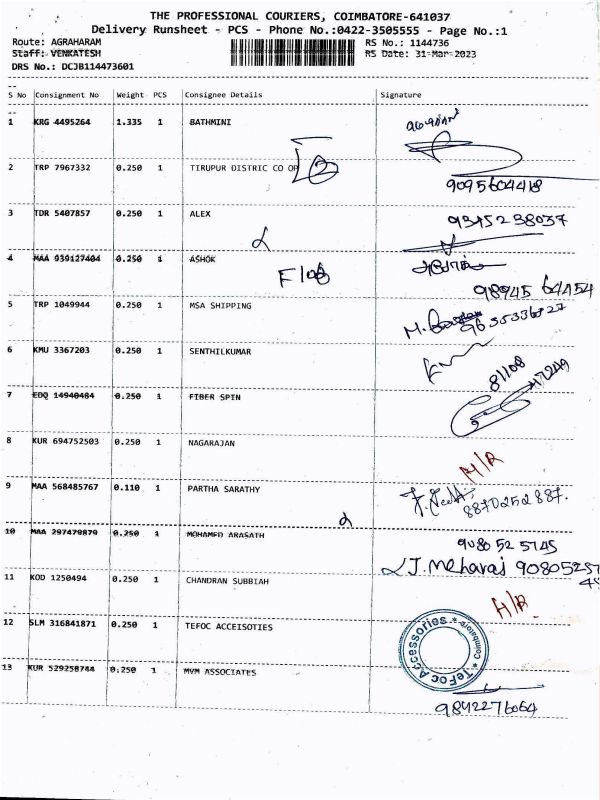 THE PROFESSIONAL COURIERS, COIMBATORE-641037
Delivery Runsheet - PCS - Phone No.:0422-3505555 - Page No.:1
Route: AGRAHARAM RS No.: 1144736
Staff: VENKATESH RS Date: 31-Mar-2023
DRS No.: DCJB114473601
S No Consignment No Weight PCS Consignee Details Signature
1 KRG 4495264 1.335 1 BATHMINI
2 TRP 7967332 0.250 1 TIRUPUR DISTRIC CO OP
9095604418
3 TDR 5407857 0.250 1 ALEX 9345238037
4 MAA 939127404 0.250 1 ASHOK
98945 64454
5 TRP 1049944 0.250 1 MSA SHIPPING
6 KMU 3367203 0.250 1 SENTHILKUMAR
81108
7 EDQ 14940484 0.250 1 FIBER SPIN
8 KUR 694752503 0.250 1 NAGARAJAN
H/R
9 MAA 568485767 0.110 1 PARTHA SARATHY
8870252887.
10 MAA 297479879 0.250 1 MOHAMED ARASATH 9080 52 5745
J. Meharaj 9080525745
11 KOD 1250494 0.250 1 CHANDRAN SUBBIAH
H/R
12 SLM 316841871 0.250 1 TEFOC ACCEISOTIES
TeFoc Accessories * Coimbatore *
13 KUR 529258744 0.250 1 MVM ASSOCIATES
9842276064